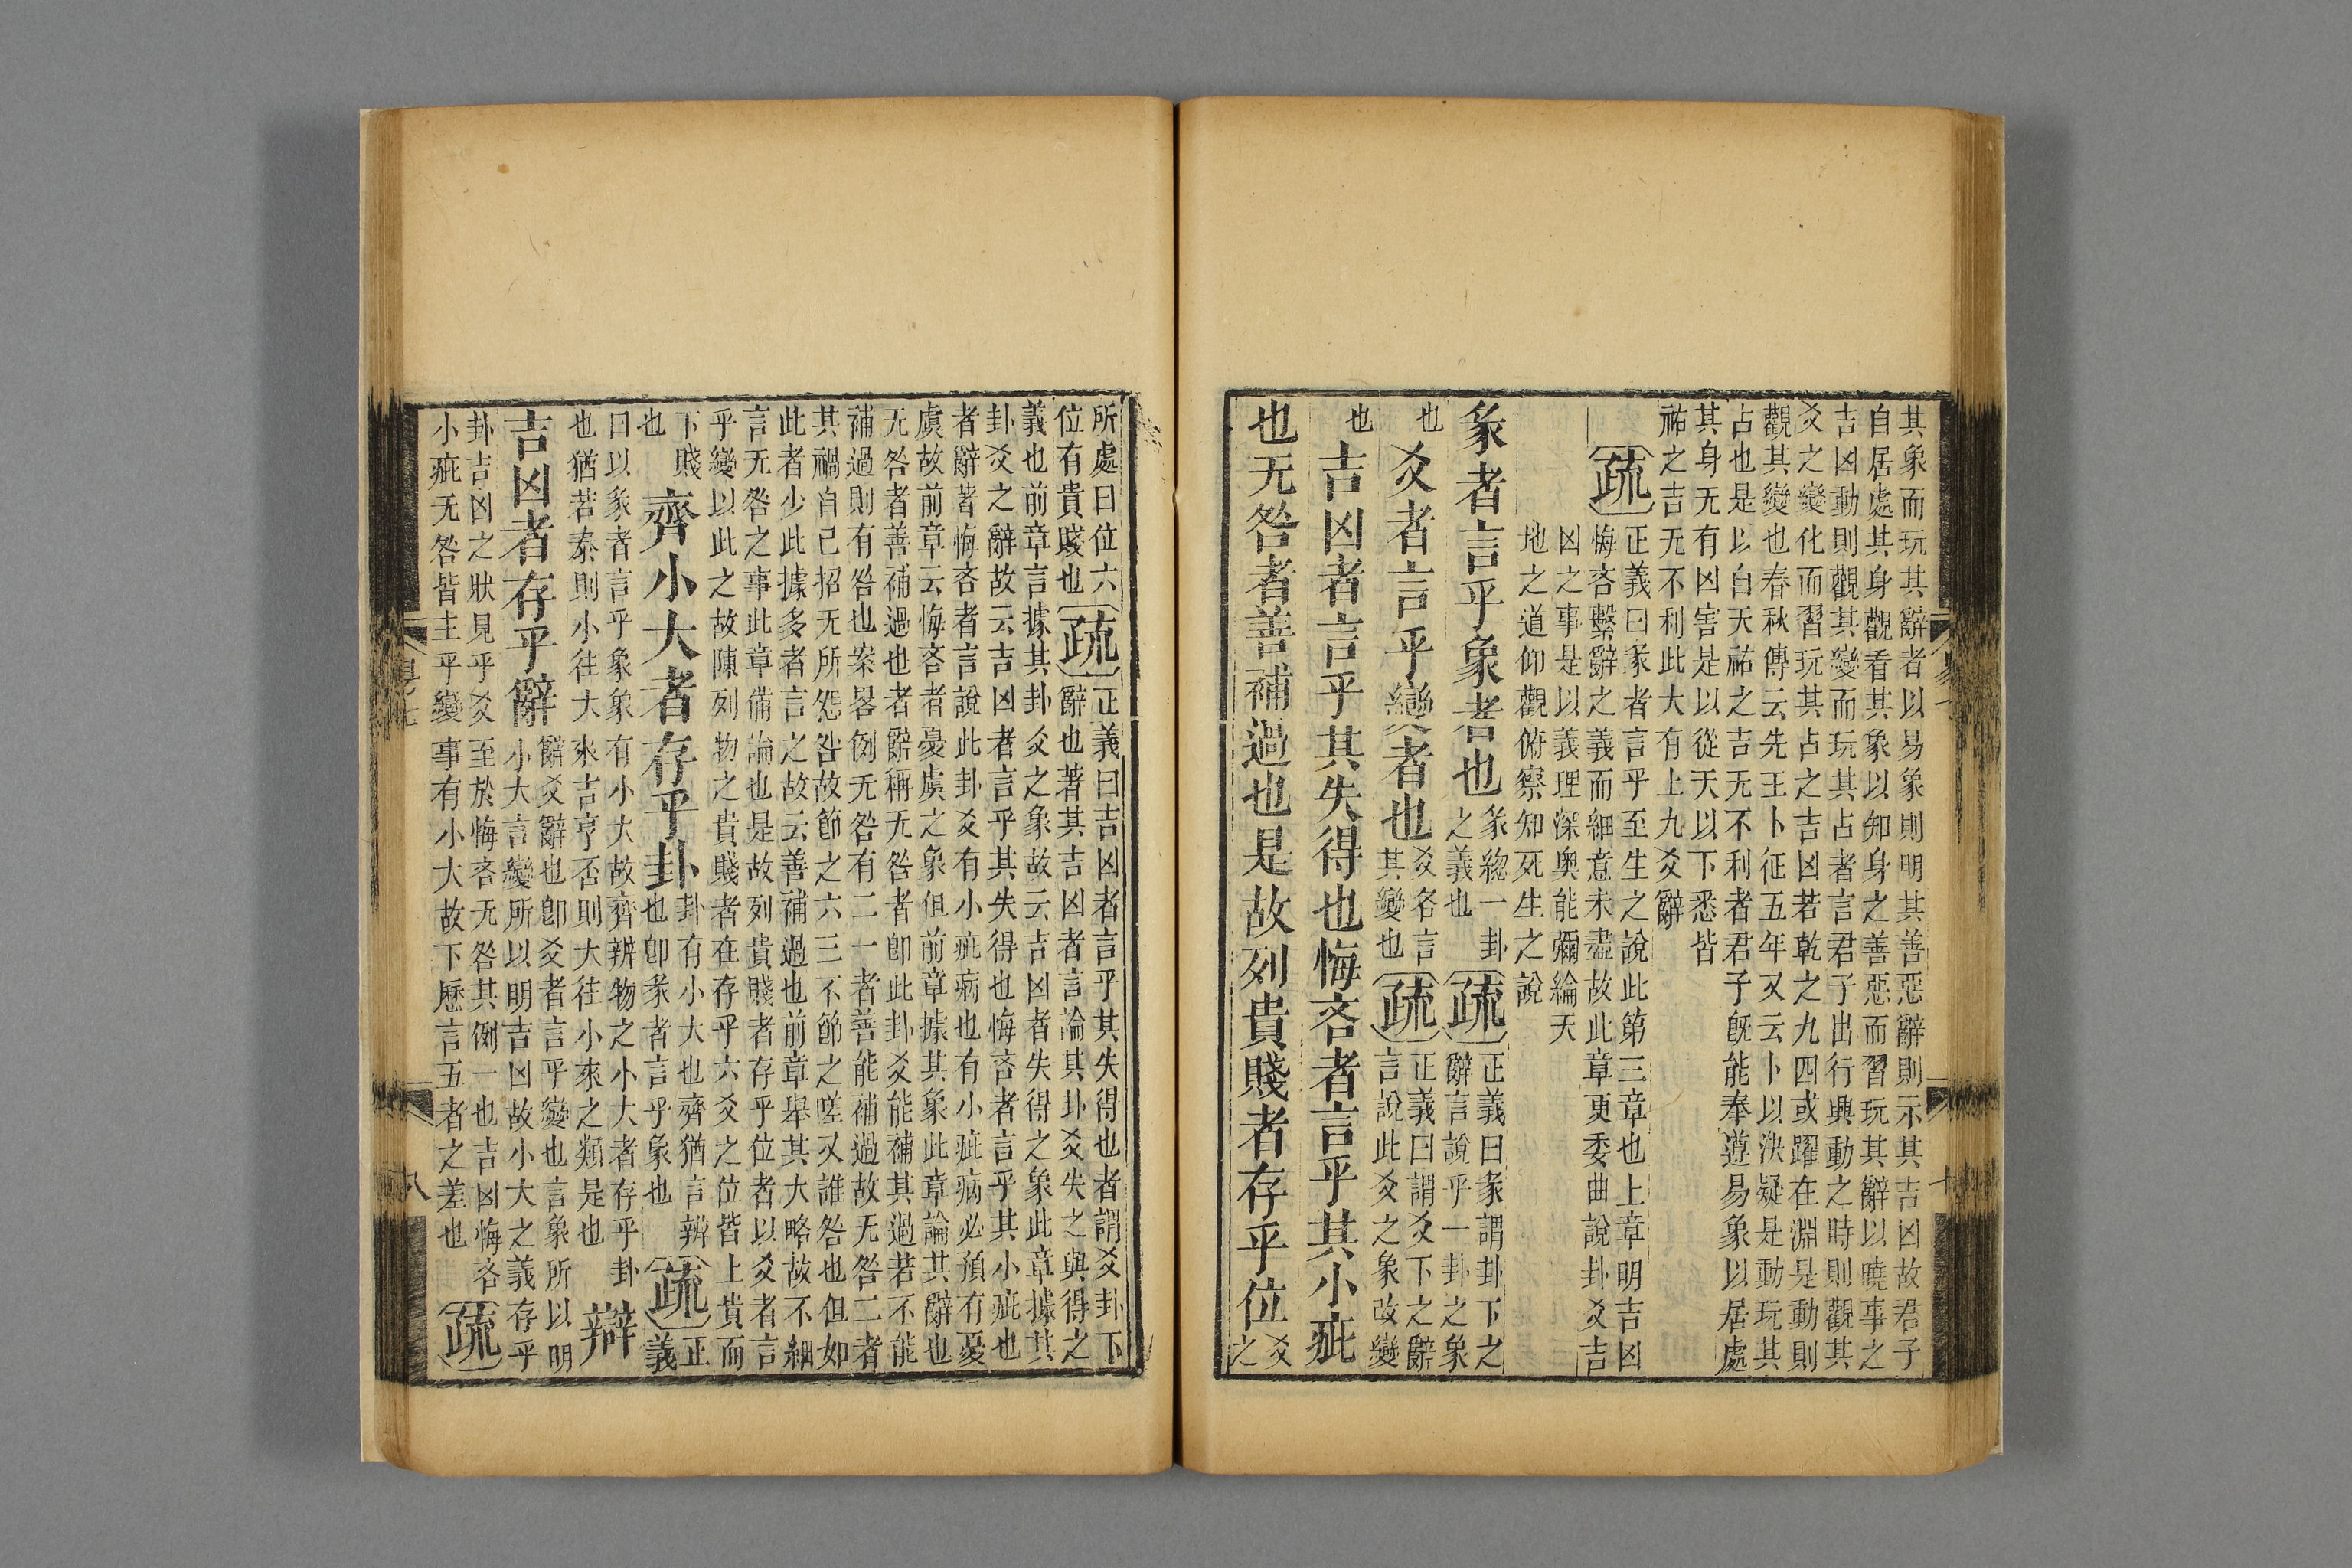 其象而玩其辭者以易象則明其善惡辭則示其吉凶故君子
自居處其身觀看其象以知身之善惡而習玩其辭以曉事之
吉凶動則觀其變而玩其占者言君子出行興動之時則觀其
爻之變化而習玩其占之吉凶若乾之九四或躍在淵是動則
觀其變也春秋傳云先王卜征五年又云卜以決疑是動玩其
占也是以自天祐之吉无不利者君子旣能奉遵易象以居處
其身无有凶害是以從天以下悉皆
祐之吉无不利此大有上九爻辭
疏
正義曰彖者言乎至生之說此第三章也上章明吉凶
悔吝繫辭之義而細意未盡故此章更委曲說卦爻吉
凶之事是以義理深奥能彌綸天
地之道仰觀俯察知死生之說
彖者言乎象者也
彖緫一卦
之義也
疏
正義曰彖謂卦下之
辭言說乎一卦之象
也
爻者言乎變者也
爻各言
其變也
疏
正義曰謂爻下之辭
言說此爻之象改變
也
吉凶者言乎其失得也悔吝者言乎其小疵
也无咎者善補過也是故列貴賤者存乎位
爻之
所處曰位六
位有貴賤也
疏
正義曰吉凶者言乎其失得也者謂爻卦下
辭也著其吉凶者言論其卦爻失之與得之
義也前章言據其卦爻之象故云吉凶者失得之象此章據其
卦爻之辭故云吉凶者言乎其失得也悔吝者言乎其小疵也
者辭著悔吝者言說此卦爻有小疵病也有小疵病必預有憂
虞故前章云悔吝者憂虞之象但前章據其象此章論其辭也
无咎者善補過也者辭稱无咎者卽此卦爻能補其過若不能
補過則有咎也案畧例无咎有二一者善能補過故无咎二者
其禍自己招无所怨咎故節之六三不節之嗟又誰咎也但如
此者少此據多者言之故云善補過也前章舉其大略故不細
言无咎之事此章備論也是故列貴賤者存乎位者以爻者言
乎變以此之故陳列物之貴賤者在存乎六爻之位皆上貴而
下賤
也
齊小大者存乎卦
卦有小大也齊猶言辨
也卽彖者言乎象也
疏
正
義
曰以彖者言乎象象有小大故齊辨物之小大者存乎卦
也猶若泰則小往大來吉亨否則大往小來之類是也
辯
吉凶者存乎辭
辭爻辭也卽爻者言乎變也言象所以明
小大言變所以明吉凶故小大之義存乎
卦吉凶之狀見乎爻至於悔吝无咎其例一也吉凶悔吝
小疵无咎皆主乎變事有小大故下歷言五者之差也
疏
易七
八